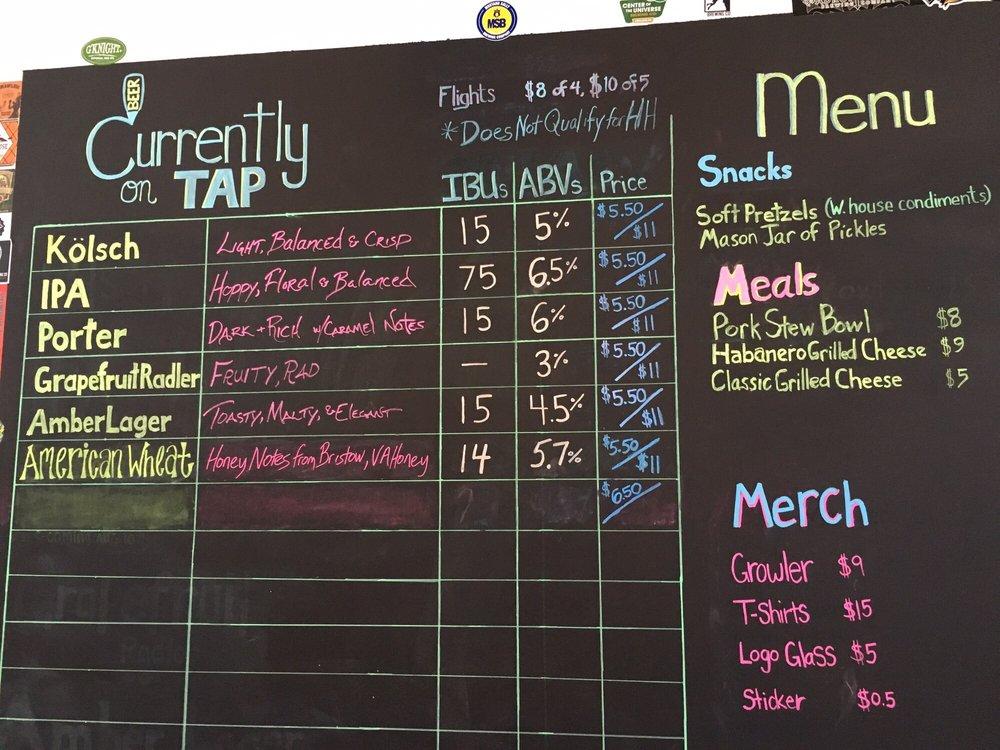 G'KNIGHT.
MSB
CENTER OF THE UNIVERSE
BEER
Currently
on TAP
Flights $8 of 4, $10 of 5
*Does Not Qualify for HH
IBUs ABVs Price
Kölsch Light, Balanced & Crisp 15 5% $5.50/$11
IPA Hoppy, Floral & Balanced 75 6.5% $5.50/$11
Porter Dark + Rich w/Caramel Notes 15 6% $5.50/$11
Grapefruit Radler Fruity, Rad — 3% $5.50/$11
Amber Lager Toasty, Malty, & Elegant 15 4.5% $5.50/$11
American Wheat Honey Notes from Bristow, VA Honey 14 5.7% $5.50/$11
$6.50/
Menu
Snacks
Soft Pretzels (W. house condiments)
Mason Jar of Pickles
Meals
Pork Stew Bowl $8
Habanero Grilled Cheese $9
Classic Grilled Cheese $5
Merch
Growler $9
T-Shirts $15
Logo Glass $5
Sticker $0.5